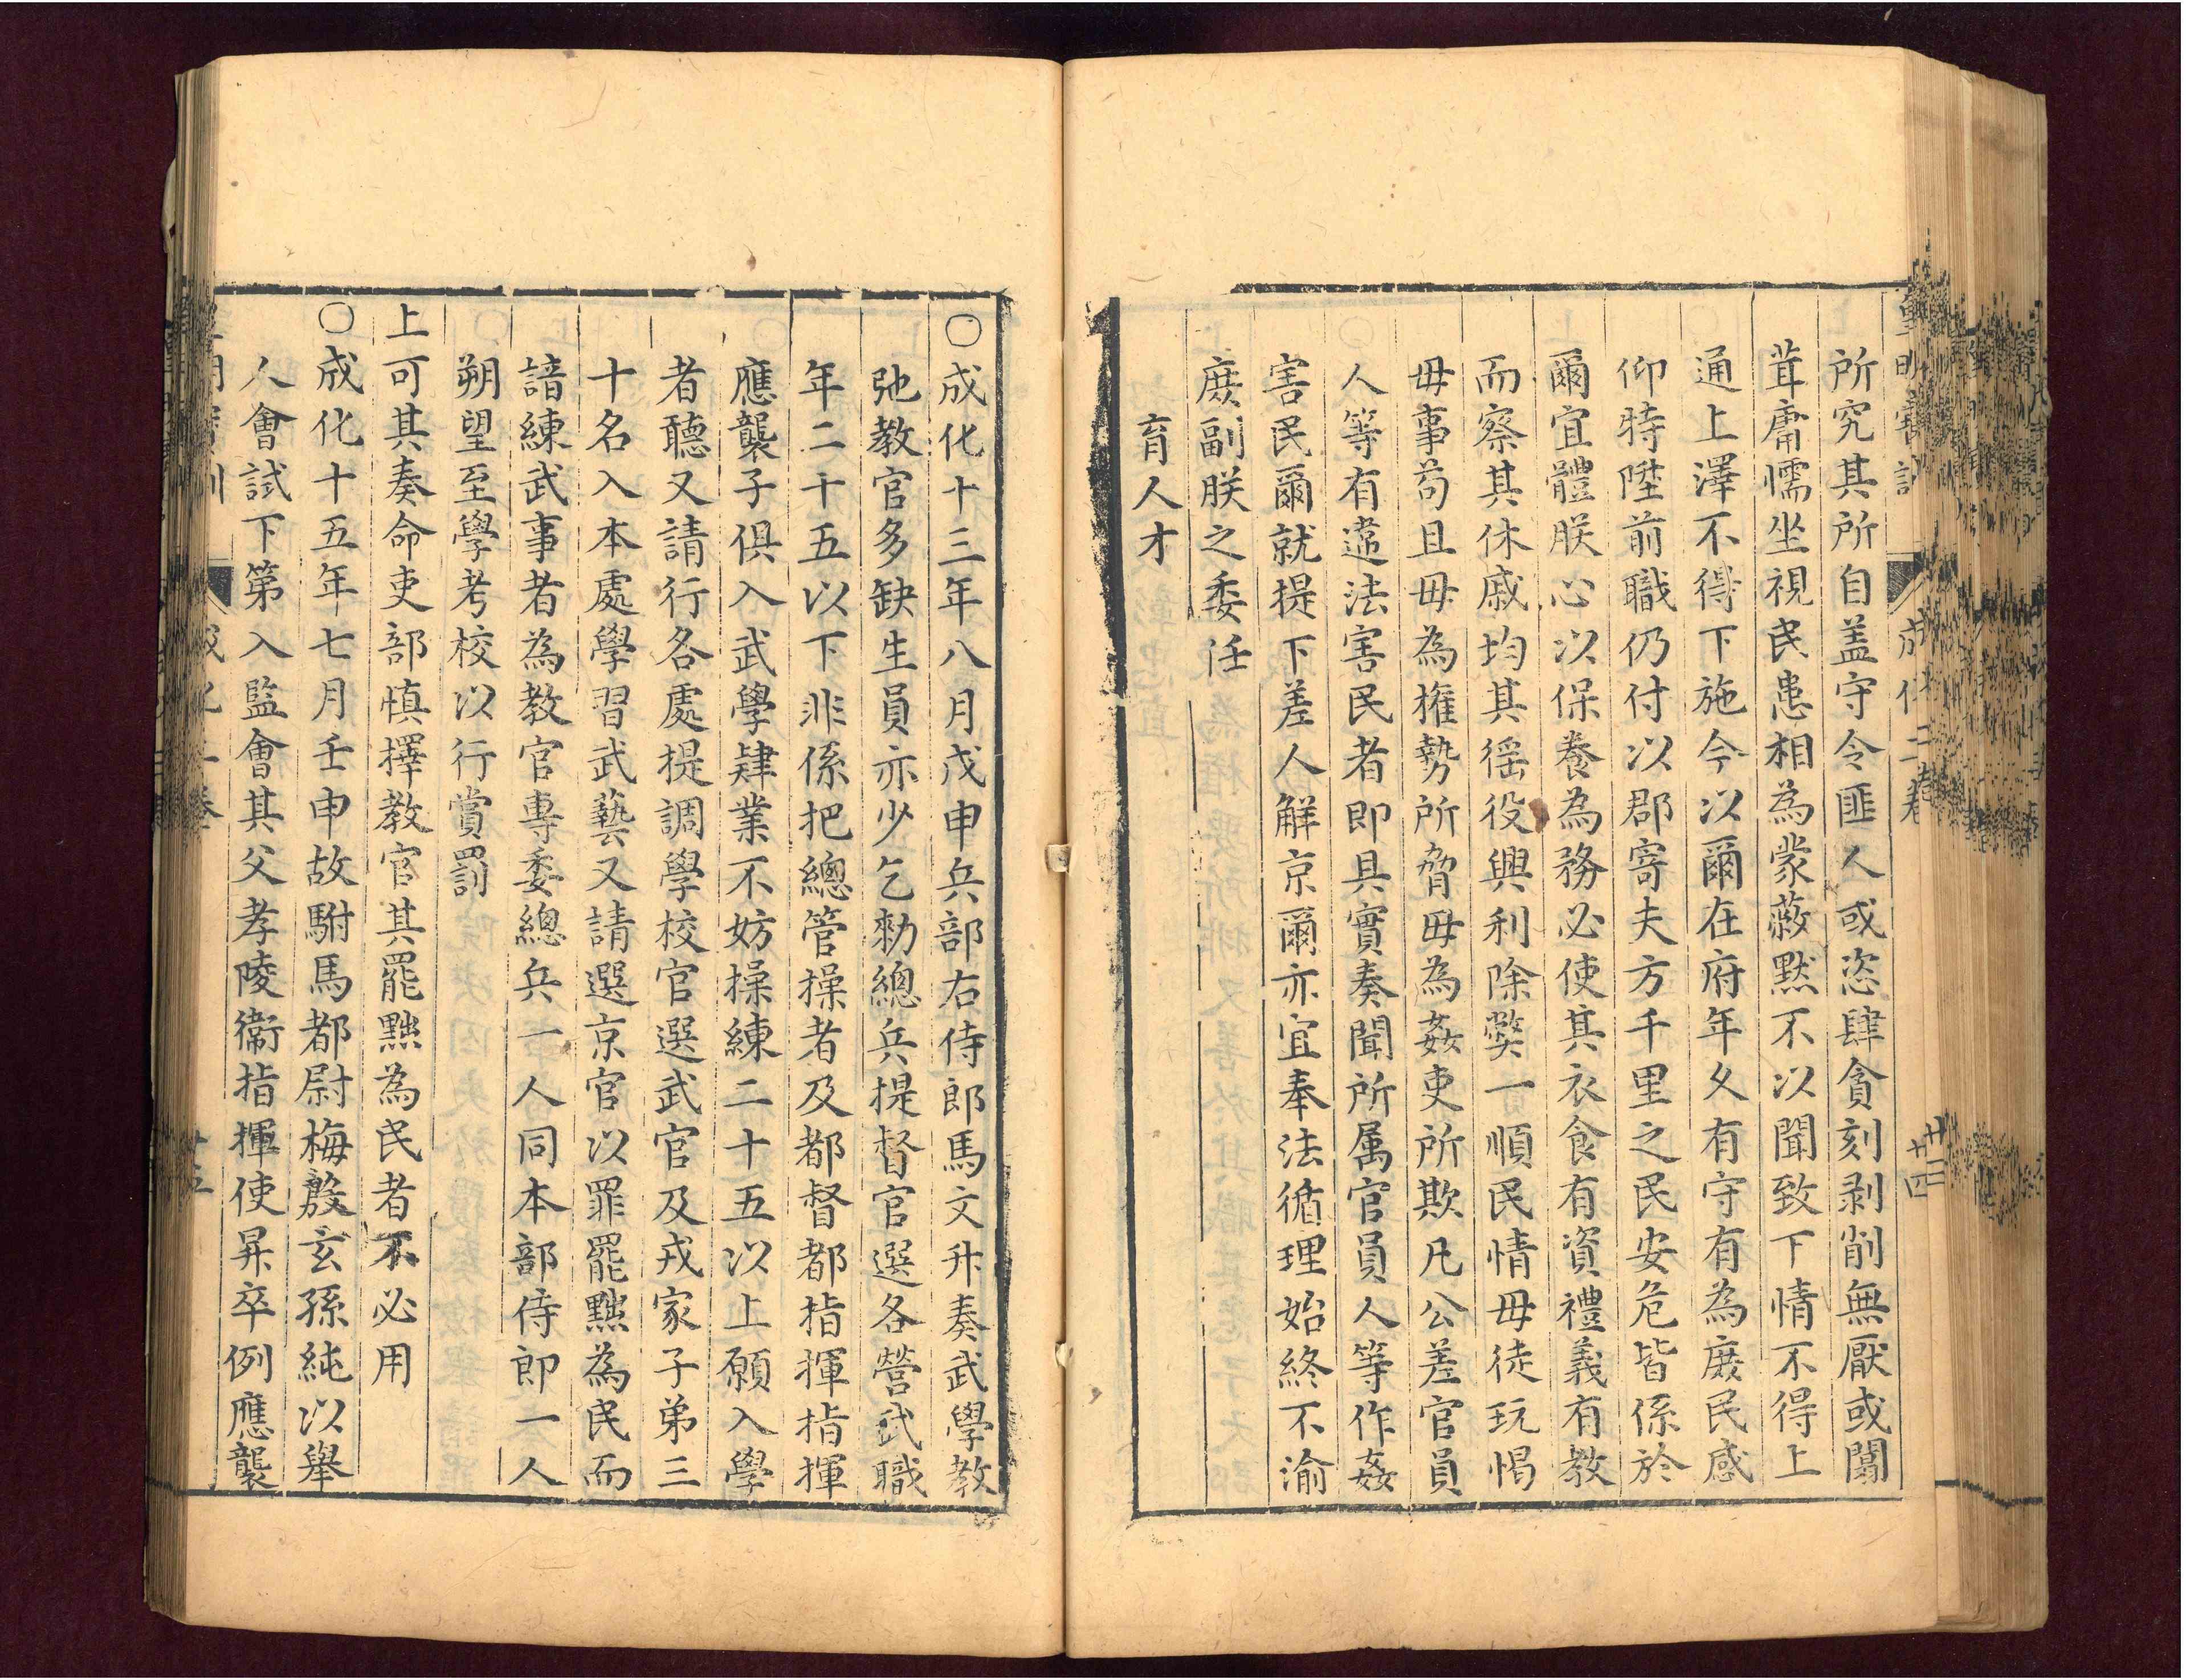 所究其所自盖守令匪人或恣肆貪刻剥削無厭或闒
茸庸懦坐視民患相為蒙蔽黙不以聞致下情不得上
通上澤不得下施今以爾在府年久有守有為庶民感
仰特陞前職仍付以郡寄夫方千里之民安危皆係於
爾宜體朕心以保養為務必使其衣食有資禮義有教
而察其休戚均其徭役興利除弊一順民情毋徒玩愒
毋事苟且毋為權勢所脅毋為姦吏所欺凡公差官員
人等有違法害民者即具實奏聞所属官員人等作姦
害民爾就提下差人解京爾亦宜奉法循理始終不渝
庶副朕之委任
育人才
〇成化十三年八月戊申兵部右侍郎馬文升奏武學教
弛教官多缺生員亦少乞勑總兵提督官選各營武職
年二十五以下非係把總管操者及都督都指揮指揮
應襲子俱入武學肄業不妨操練二十五以上願入學
者聽又請行各處提調學校官選武官及戎家子弟三
十名入本處學習武藝又請選京官以罪罷黜為民而
諳練武事者為教官專委總兵一人同本部侍郎一人
朔望至學考校以行賞罰
上可其奏命吏部慎擇教官其罷黜為民者不必用
〇成化十五年七月壬申故駙馬都尉梅殷玄孫純以舉
人會試下第入監會其父孝陵衛指揮使昇卒例應襲